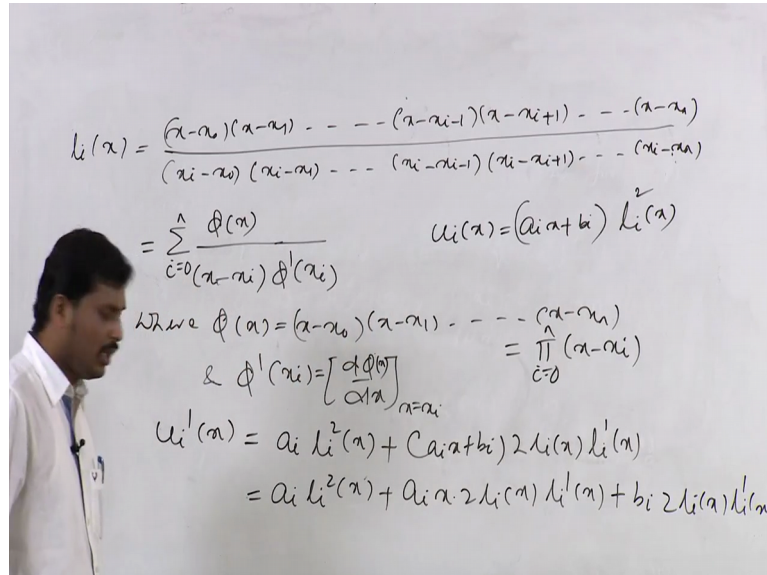 li(x) = (x-x₀)(x-x₁) - - - - - (x-xi-1)(x-xi+1) - - - - (x-xn) / (xi-x₀)(xi-x₁) - - - (xi-xi-1)(xi-xi+1) - - - (xi-xn)
= Σ_{i=0}^{n} ϕ(x) / (x-xi) ϕ'(xi)
ui(x) = (aix+bi) li²(x)
where ϕ(x) = (x-x₀)(x-x₁) - - - - - (x-xn)
= Π_{i=0}^{n} (x-xi)
& ϕ'(xi) = [dϕ(x)/dx]_{x=xi}
ui'(x) = ai li²(x) + (aix+bi) 2 li(x) li'(x)
= ai li²(x) + aix·2 li(x) li'(x) + bi 2 li(x) li'(x